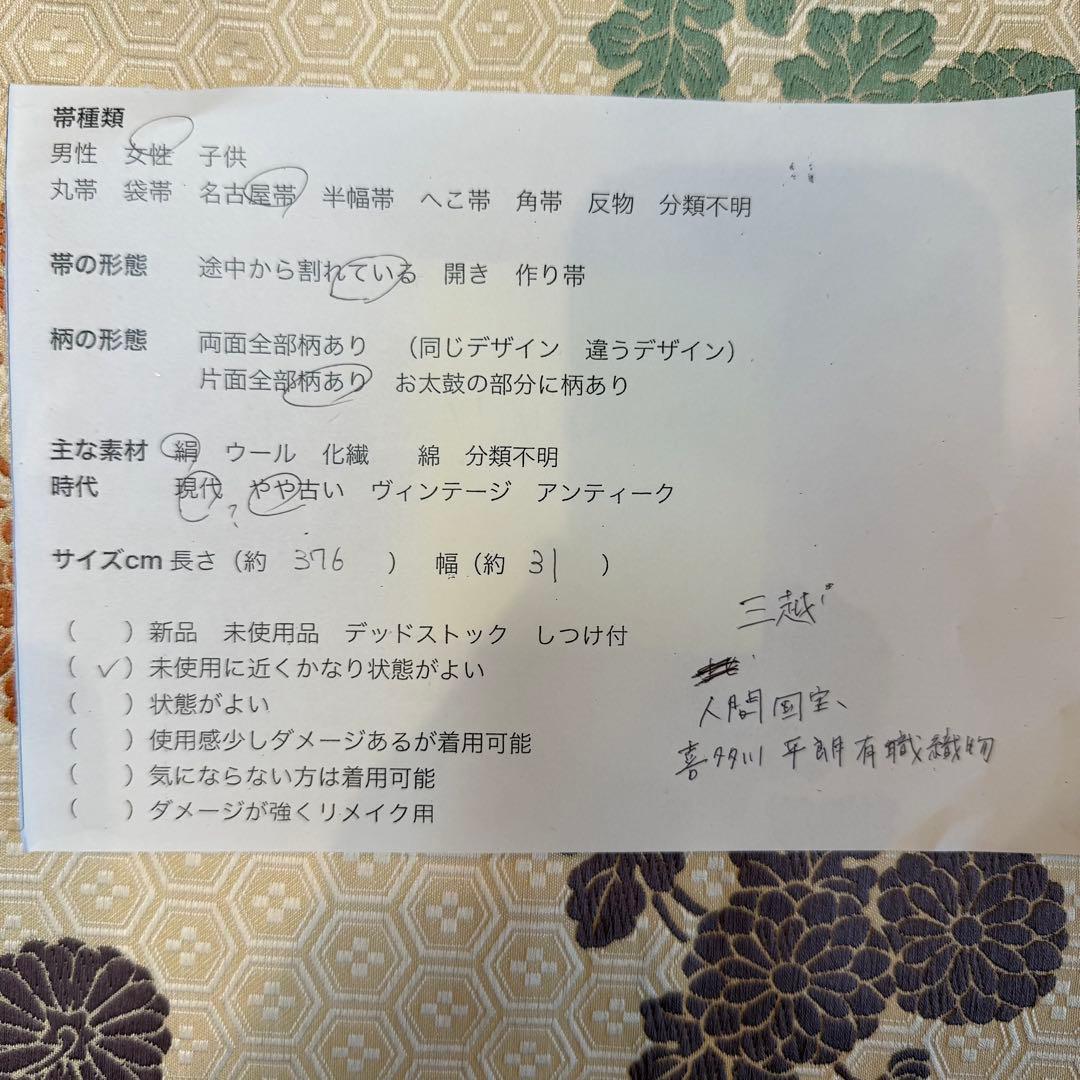 帯種類
男性 女性 子供
丸帯 袋帯 名古屋帯 半幅帯 へこ帯 角帯 反物 分類不明
帯の形態 途中から割れている 開き 作り帯
柄の形態 両面全部柄あり (同じデザイン 違うデザイン)
片面全部柄あり お太鼓の部分に柄あり
主な素材 絹 ウール 化繊 綿 分類不明
時代 現代 やや古い ヴィンテージ アンティーク
?
サイズcm 長さ(約 376 ) 幅(約 31 )
( )新品 未使用品 デッドストック しつけ付
(✓)未使用に近くかなり状態がよい
( )状態がよい
( )使用感少しダメージあるが着用可能
( )気にならない方は着用可能
( )ダメージが強くリメイク用
三越
人間国宝、
喜多川平朗有職織物